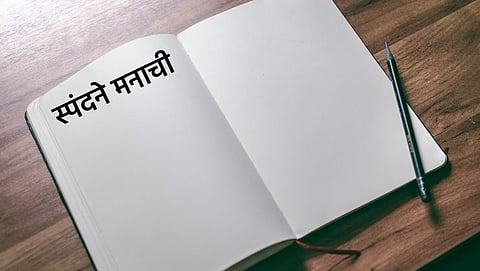 स्पंदने मनाची